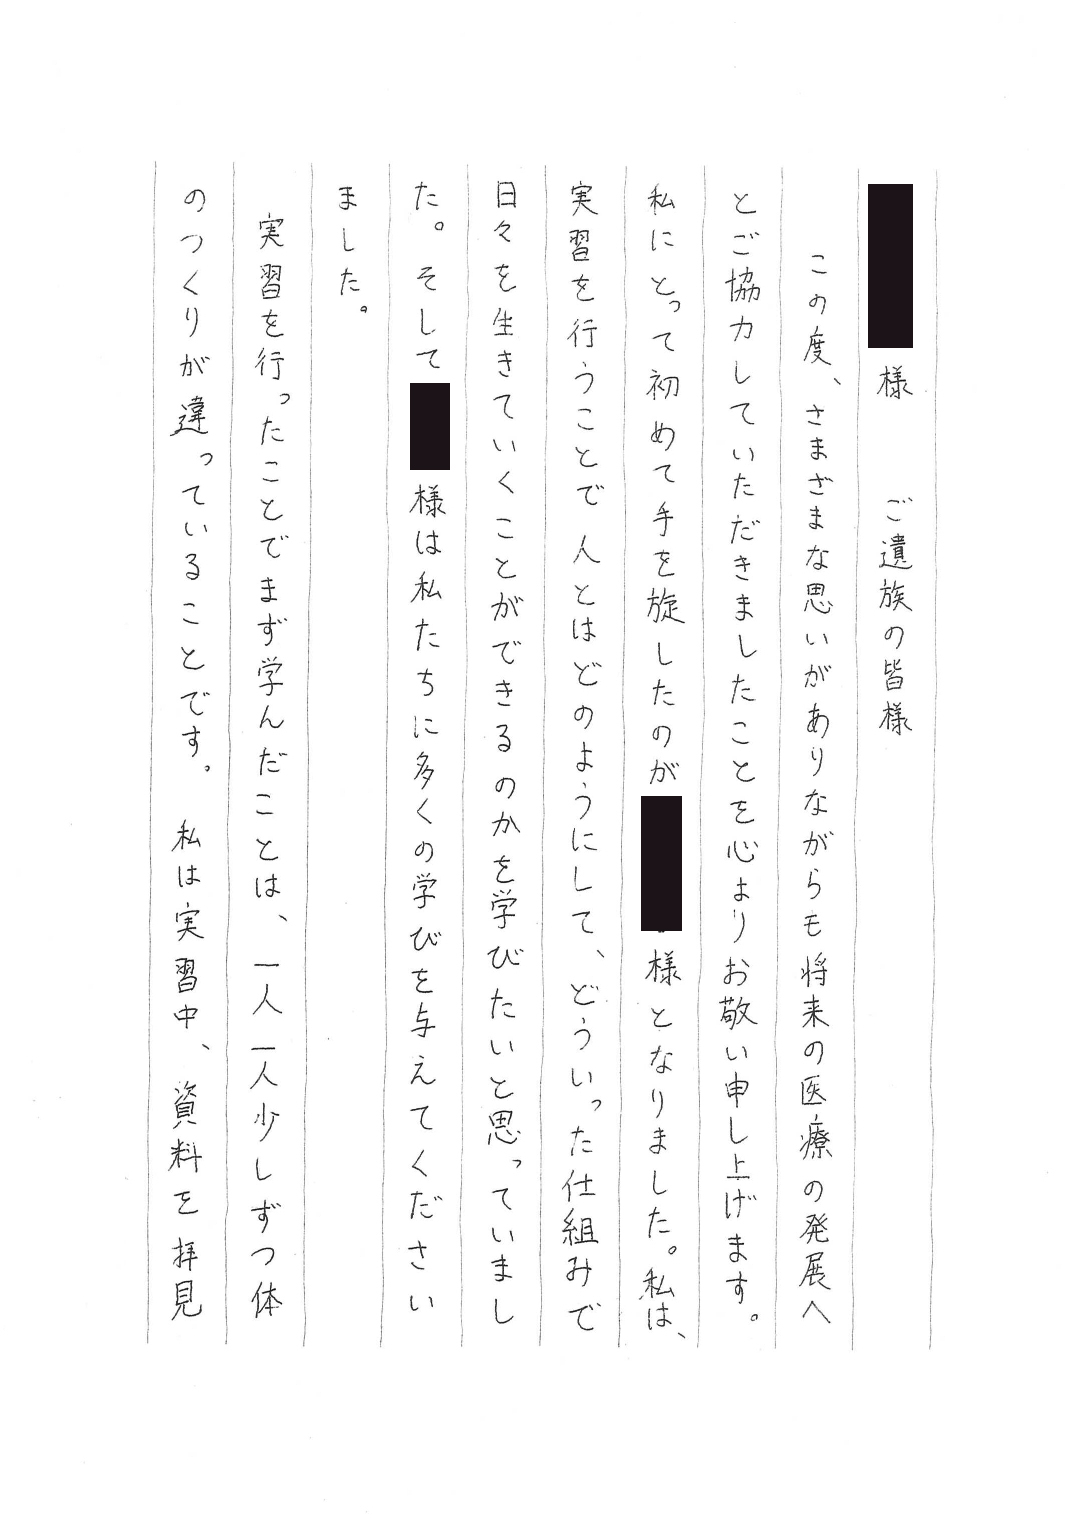 様　ご遺族の皆様
この度、さまざまな思いがありながらも将来の医療の発展へ
とご協力していただきましたことを心よりお敬い申し上げます。
私にとって初めて手を旋したのが様となりました。私は、
実習を行うことで人とはどのようにして、どういった仕組みで
日々を生きていくことができるのかを学びたいと思っていまし
た。そして様は私たちに多くの学びを与えてください
ました。
実習を行ったことでまず学んだことは、一人一人少しずつ体
のつくりが違っていることです。私は実習中、資料を拝見